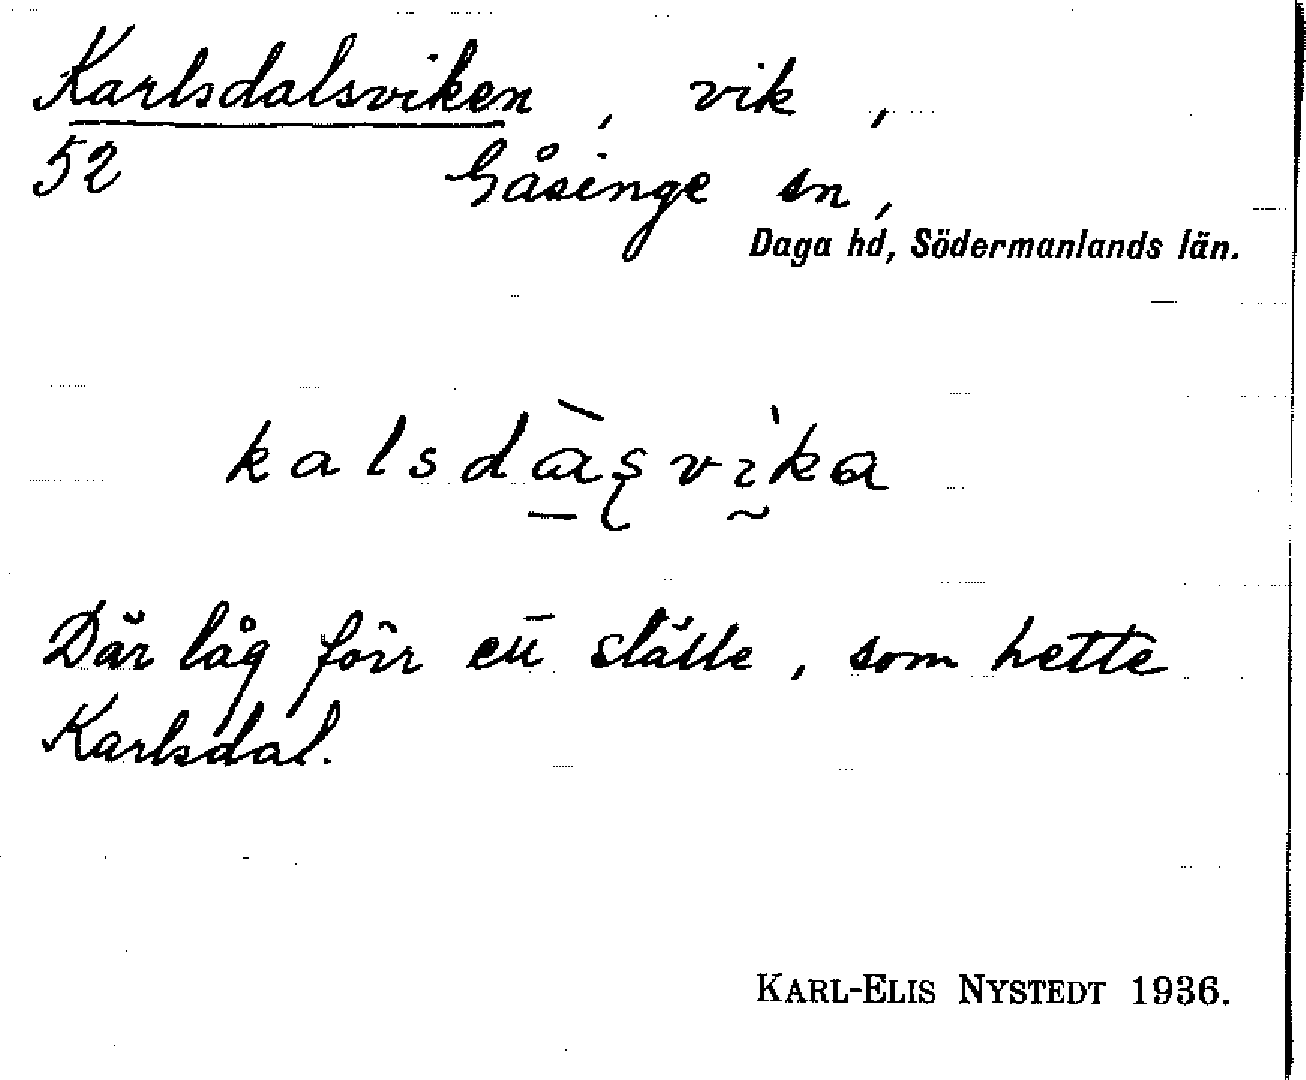 Karlsdalsviken, vik,
52 Gåsinge sn,
Daga hd, Södermanlands län.
kalsdàsvìka
Där låg förr ett ställe, som hette
Karlsdal.
KARL-ELIS NYSTEDT 1936.